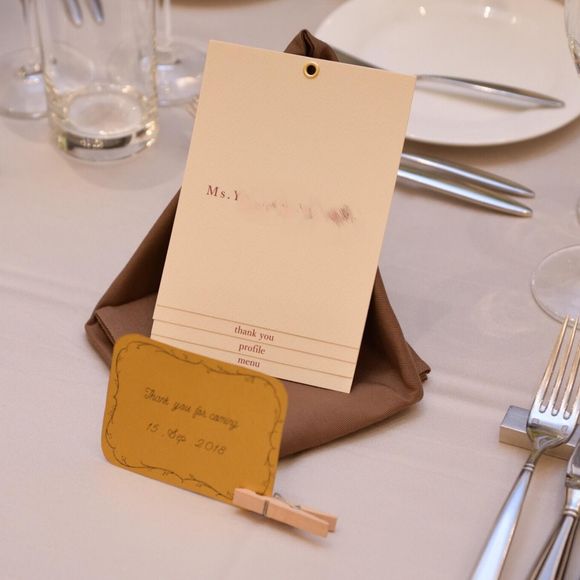 Ms.Y
thank you
profile
menu
Thank you for coming
15. Sep 2018